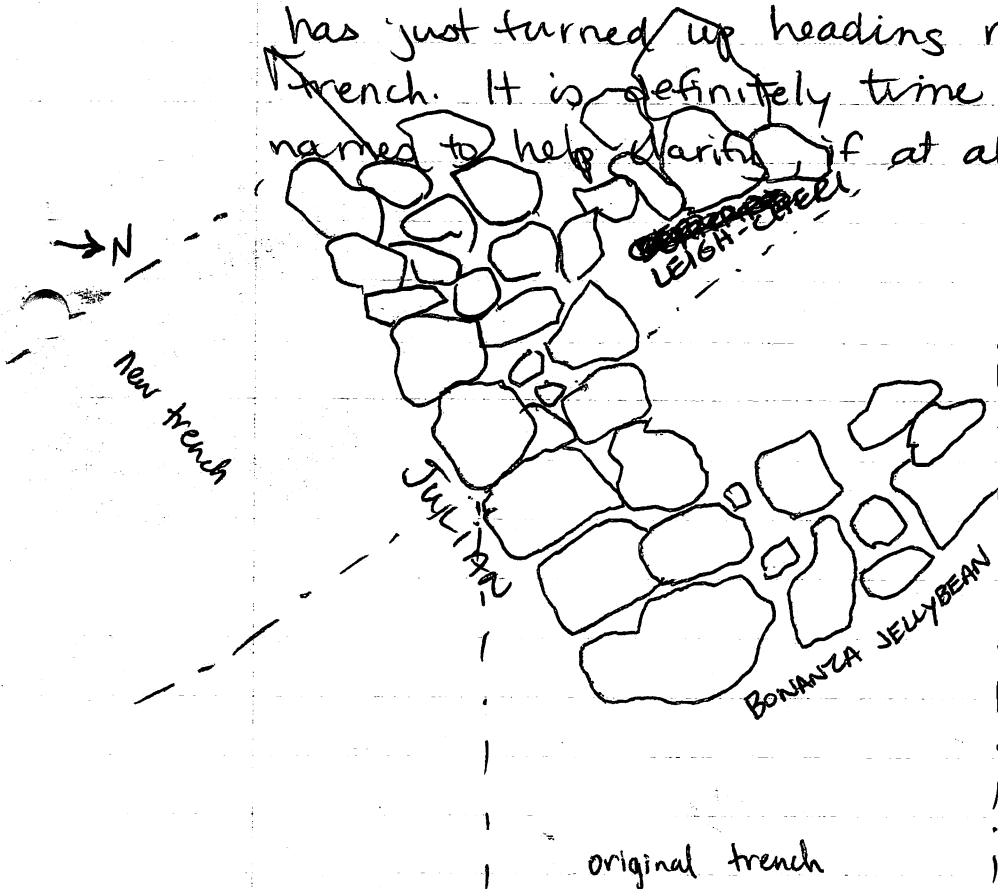 has just turned up heading
trench. It is definitely time
named to help clarify, if at
LEIGH-CHERI
N
new trench
JULIAN
BONANZA JELLYBEAN
original trench